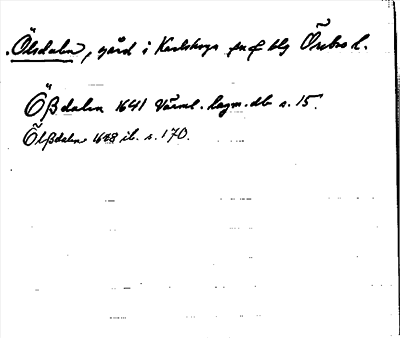 Ölsdalen, gård i Karlskoga snf blg Örebro l.
Ößdalen 1641 Värml. lagm. db s. 15.
Ölßdalen 1648 ib. s. 170.